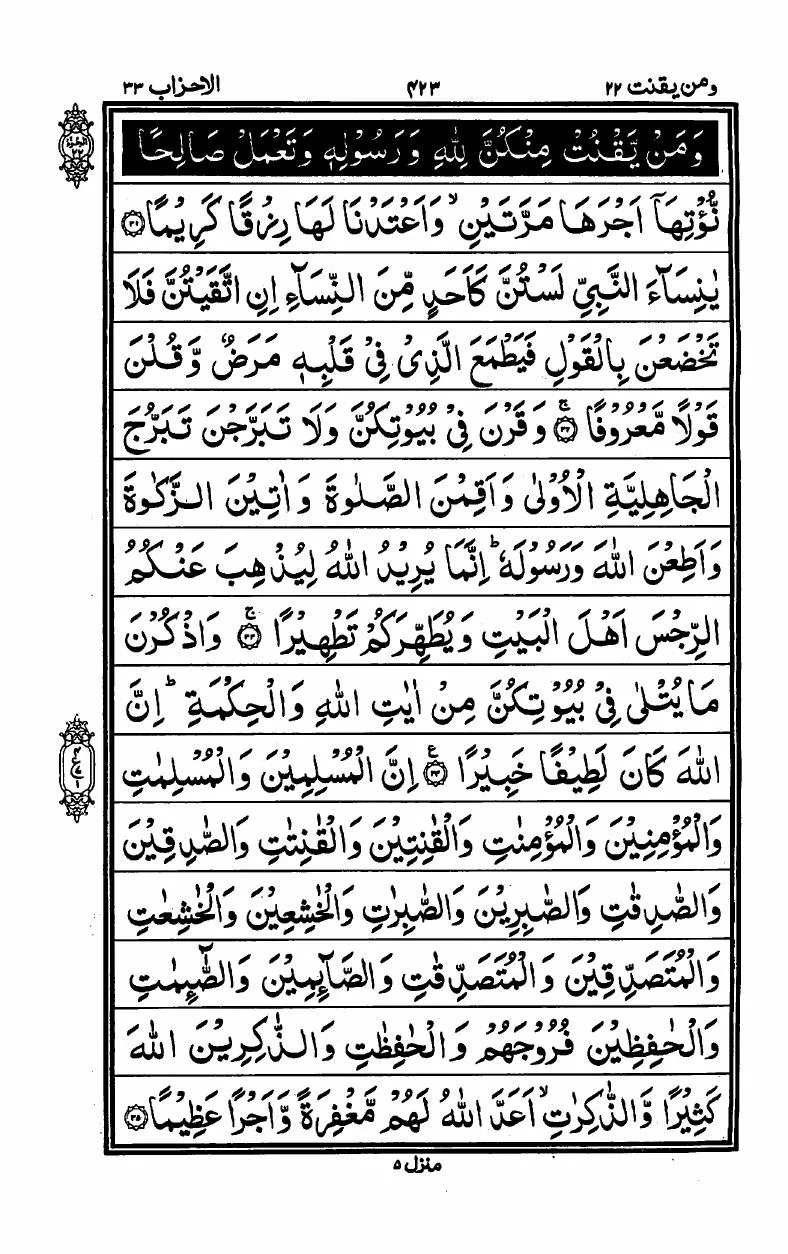 ومن يقنت ٢٢ ٤٢٣ الاحزاب ٣٣
الجزء ٢٢
وَمَنْ يَّقْنُتْ مِنْكُنَّ لِلّٰهِ وَرَسُوْلِهٖ وَتَعْمَلْ صَالِحًا
نُّؤْتِهَاۤ اَجْرَهَا مَرَّتَيْنِ ۙ وَاَعْتَدْنَا لَهَا رِزْقًا كَرِيْمًا ۝٣١
يٰنِسَآءَ النَّبِيِّ لَسْتُنَّ كَاَحَدٍ مِّنَ النِّسَآءِ اِنِ اتَّقَيْتُنَّ فَلَا
تَخْضَعْنَ بِالْقَوْلِ فَيَطْمَعَ الَّذِىْ فِىْ قَلْبِهٖ مَرَضٌ وَّقُلْنَ
قَوْلًا مَّعْرُوْفًا ۝٣٢ ۚ وَقَرْنَ فِىْ بُيُوْتِكُنَّ وَلَا تَبَرَّجْنَ تَبَرُّجَ
الْجَاهِلِيَّةِ الْاُوْلٰى وَاَقِمْنَ الصَّلٰوةَ وَاٰتِيْنَ الزَّكٰوةَ
وَاَطِعْنَ اللّٰهَ وَرَسُوْلَهٗ ؕ اِنَّمَا يُرِيْدُ اللّٰهُ لِيُذْهِبَ عَنْكُمُ
الرِّجْسَ اَهْلَ الْبَيْتِ وَيُطَهِّرَكُمْ تَطْهِيْرًا ۝٣٣ ۚ وَاذْكُرْنَ
مَا يُتْلٰى فِىْ بُيُوْتِكُنَّ مِنْ اٰيٰتِ اللّٰهِ وَالْحِكْمَةِ ؕ اِنَّ
اللّٰهَ كَانَ لَطِيْفًا خَبِيْرًا ۝٣٤ ع اِنَّ الْمُسْلِمِيْنَ وَالْمُسْلِمٰتِ
٤ ع ٧ ١
وَالْمُؤْمِنِيْنَ وَالْمُؤْمِنٰتِ وَالْقٰنِتِيْنَ وَالْقٰنِتٰتِ وَالصّٰدِقِيْنَ
وَالصّٰدِقٰتِ وَالصّٰبِرِيْنَ وَالصّٰبِرٰتِ وَالْخٰشِعِيْنَ وَالْخٰشِعٰتِ
وَالْمُتَصَدِّقِيْنَ وَالْمُتَصَدِّقٰتِ وَالصَّآئِمِيْنَ وَالصّٰٓئِمٰتِ
وَالْحٰفِظِيْنَ فُرُوْجَهُمْ وَالْحٰفِظٰتِ وَالذّٰكِرِيْنَ اللّٰهَ
كَثِيْرًا وَّالذّٰكِرٰتِ ۙ اَعَدَّ اللّٰهُ لَهُمْ مَّغْفِرَةً وَّاَجْرًا عَظِيْمًا ۝٣٥
منزل ٥